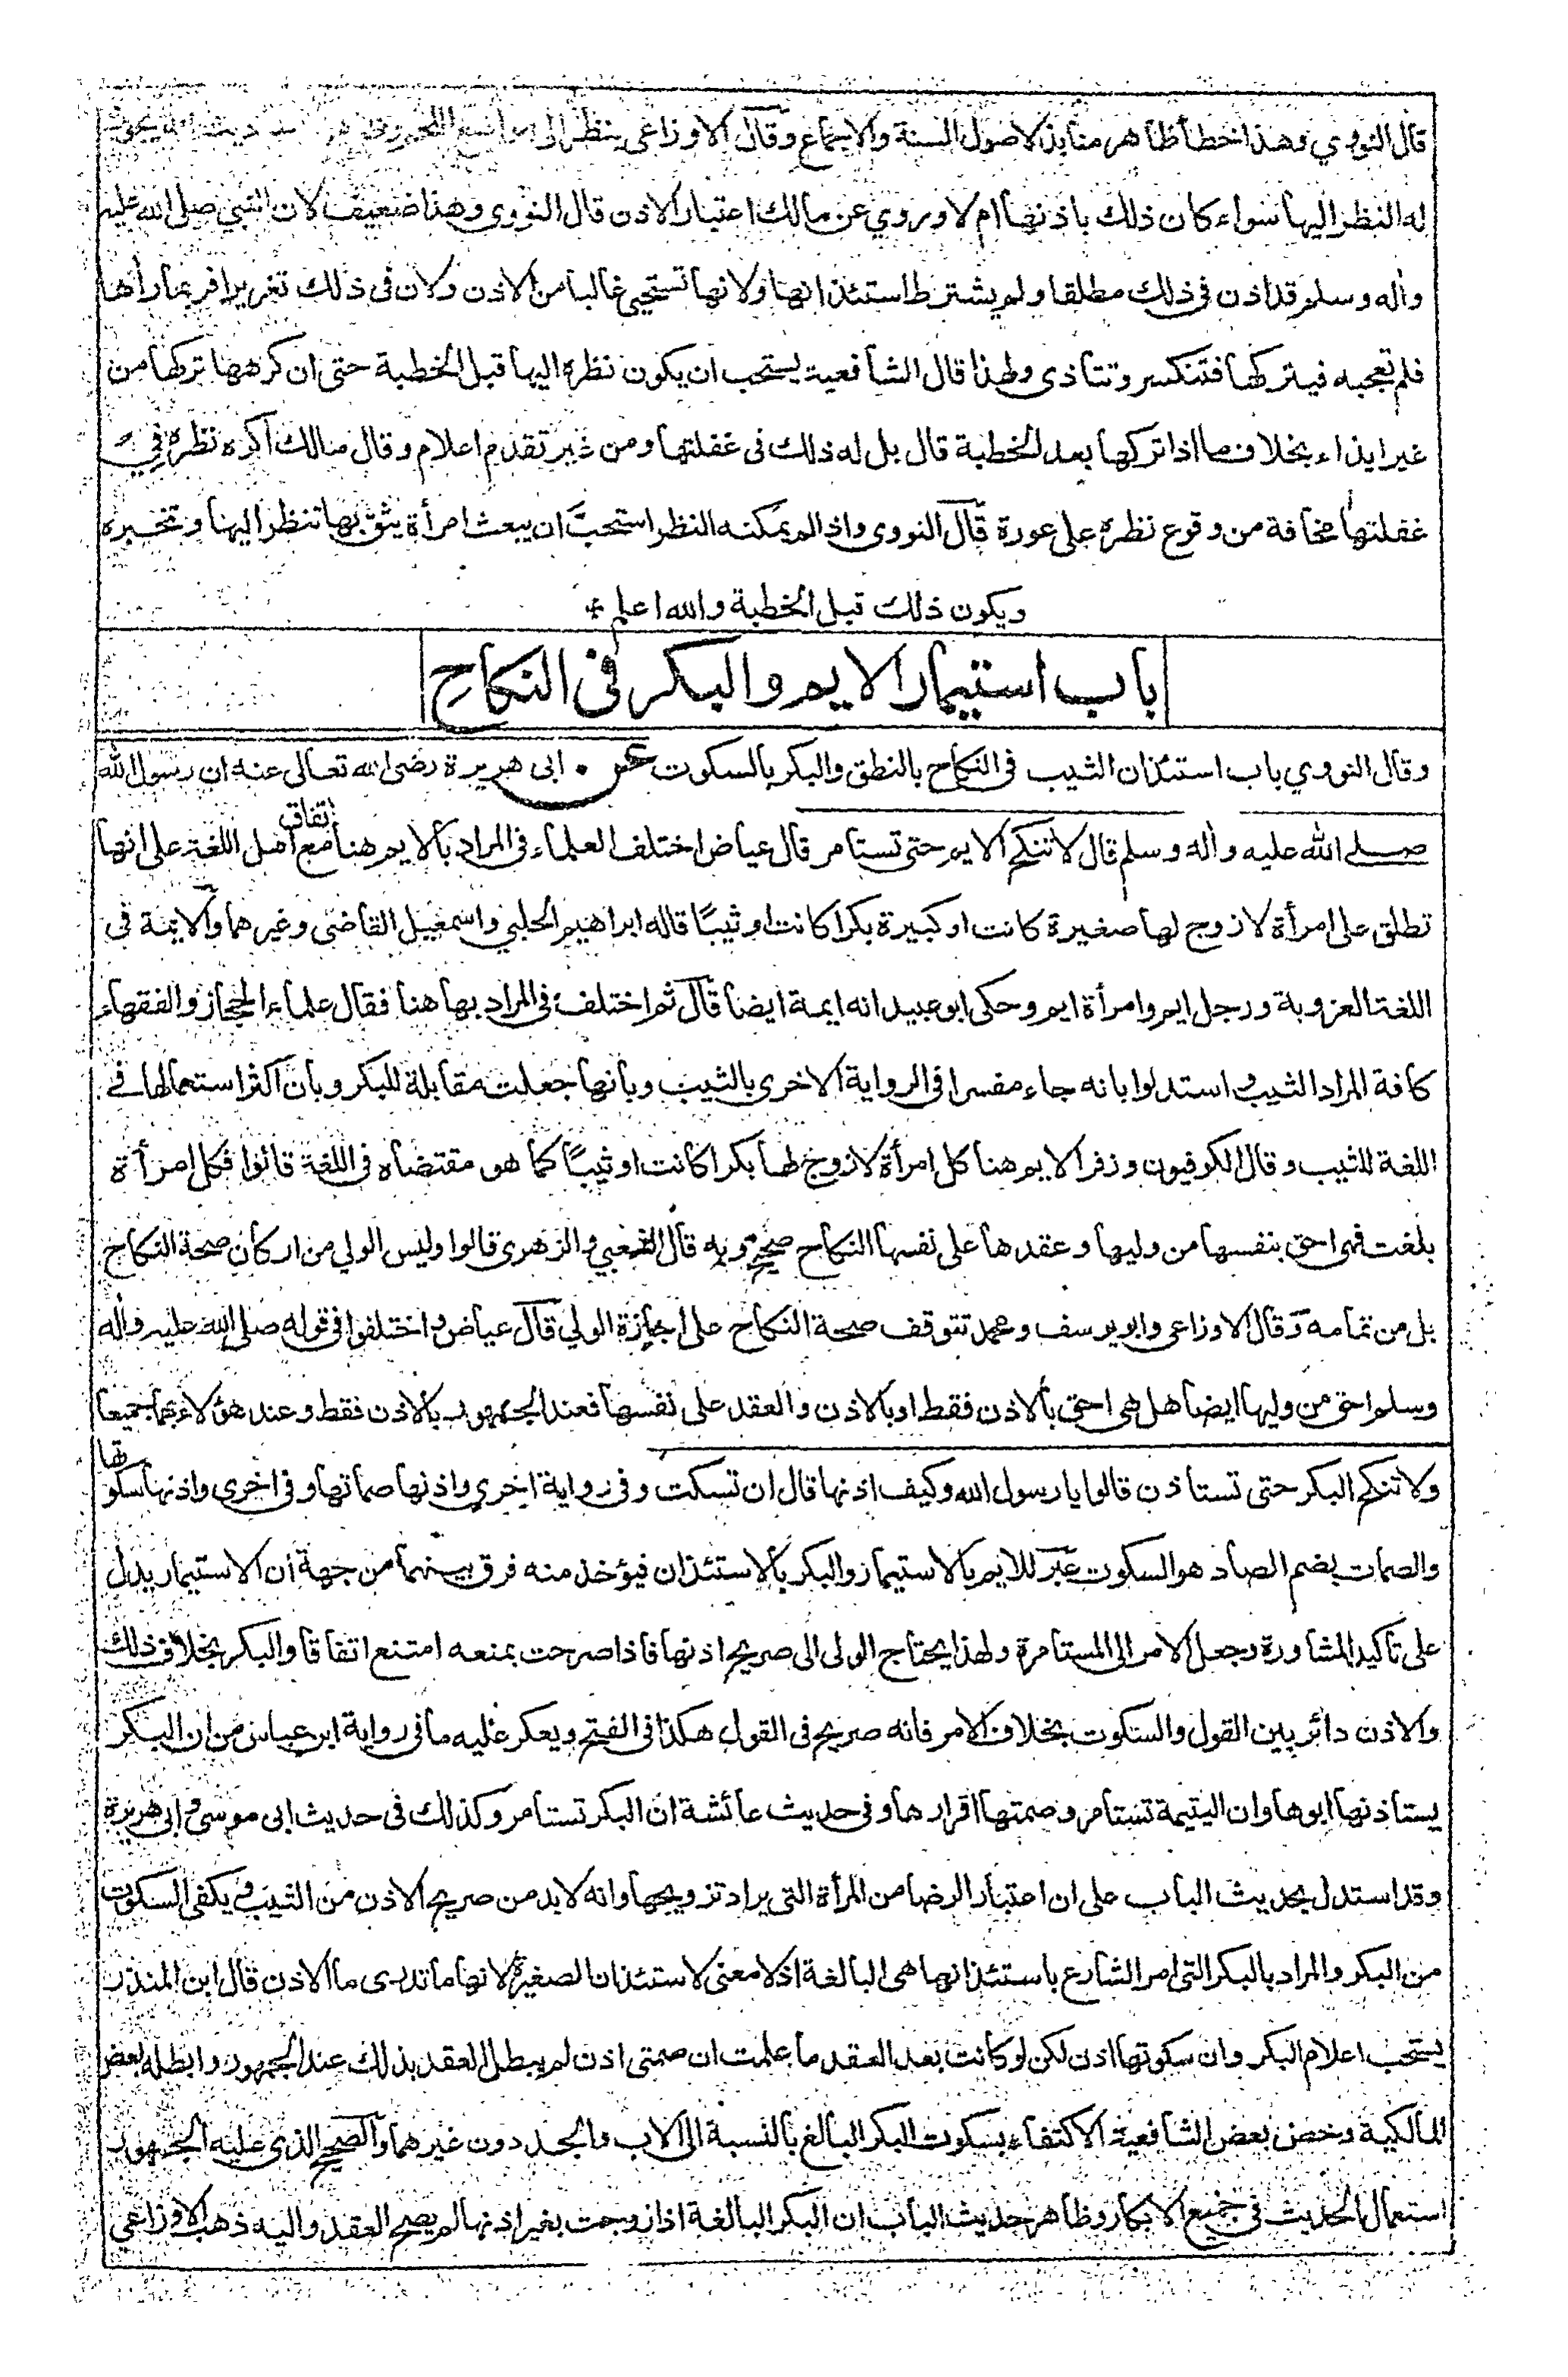 قال النووي وهذا خطأ ظاهر منابذ لاصول السنة والاجماع وقال الاوزاعى ينظر الى مواضع اللحم
له النظر اليها سواء كان ذلك باذنها ام لا وروي عن مالك اعتبار الاذن قال النووى وهذا ضعيف لان النبي صلى الله عليه
واله وسلم قد اذن فى ذلك مطلقا ولم يشترط استئذانها ولانها تستحيى غالبا من الاذن ولان فى ذلك تغريرا فربما راها
فلم تعجبه فيتركها فتنكسر وتتأذى ولهذا قال الشافعية يستحب ان يكون نظره اليها قبل الخطبة حتى ان كرهها تركها من
غير ايذاء بخلاف ما اذا تركها بعد الخطبة قال بل له ذلك فى غفلتها ومن غير تقدم اعلام وقال مالك اكره نظره فى
غفلتها مخافة من وقوع نظره على عورة قال النووى واذا لم يمكنه النظر استحب ان يبعث امرأة يثق بها تنظر اليها وتخبره
ويكون ذلك قبل الخطبة والله اعلم *
باب استيمار الايم والبكر فى النكاح
وقال النووي باب استئذان الثيب فى النكاح بالنطق والبكر بالسكوت عن ابى هريرة رضى الله تعالى عنه ان رسول الله
صلى الله عليه واله وسلم قال لا تنكح الايم حتى تستامر قال عياض اختلف العلماء فى المراد بالايم هنا مع اتفاق اهل اللغة على انها
تطلق على امرأة لا زوج لها صغيرة كانت او كبيرة بكرا كانت او ثيبًا قاله ابراهيم الحلبي واسمعيل القاضى وغيرهما والايمة فى
اللغة العزوبة ورجل ايم وامرأة ايم وحكى ابو عبيد انه ايمة ايضا قال ثم اختلف فى المراد بها هنا فقال علماء الحجاز والفقهاء
كافة المراد الثيب واستدلوا بانه جاء مفسرا فى الرواية الاخرى بالثيب وبانها جعلت مقابلة للبكر وبان اكثر استعمالها فے
اللغة للثيب وقال الكوفيون وزفر الايم هنا كل امرأة لا زوج لها بكرا كانت او ثيبًا كما هو مقتضاه فى اللغة قالوا فكل امرأة
بلغت فهى احق بنفسها من وليها وعقدها على نفسها النكاح صحيح وبه قال الشعبي والزهرى قالوا وليس الولي من اركان صحة النكاح
بل من تمامه وقال الاوزاعى وابو يوسف ومحمد تتوقف صحة النكاح على اجازة الولي قال عياض واختلفوا فى قوله صلى الله عليه واله
وسلم احق من وليها ايضا هل هى احق بالاذن فقط او بالاذن والعقد على نفسها فعند الجمهور بالاذن فقط وعند هؤلاء بهما جميعا
ولا تنكح البكر حتى تستاذن قالوا يا رسول الله وكيف اذنها قال ان تسكت وفى رواية اخرى واذنها صماتها وفى اخرى واذنها سكوتها
والصمات بضم الصاد هو السكوت عبر للايم بالاستيمار والبكر بالاستئذان فيؤخذ منه فرق بينهما من جهة ان الاستيمار يدل
على تاكيد المشاورة وجعل الامر الى المستامرة ولهذا يحتاج الولى الى صريح اذنها فاذا صرحت بمنعه امتنع اتفاقا والبكر بخلاف ذلك
والاذن دائر بين القول والسكوت بخلاف الامر فانه صريح فى القول هكذا فى الفتح ويعكر عليه ما فى رواية ابن عباس من ان البكر
يستاذنها ابوها وان اليتيمة تستامر وصمتها اقرارها وفى حديث عائشة ان البكر تستامر وكذلك فى حديث ابى موسى وابى هريرة
وقد استدل بحديث الباب على ان اعتبار الرضا من المرأة التى يراد تزويجها وانه لا بد من صريح الاذن من الثيب ويكفى السكوت
من البكر والمراد بالبكر التى امر الشارع باستئذانها هى البالغة اذ لا معنى لاستئذان الصغيرة لانها ما تدرى ما الاذن قال ابن المنذر
يستحب اعلام البكر وان سكوتها اذن لكن لو كانت بعد العقد ما علمت ان صمتى اذن لم يبطل العقد بذلك عند الجمهور وابطله بعض
المالكية وخص بعض الشافعية الاكتفاء بسكوت البكر البالغ بالنسبة الى الاب والجد دون غيرهما والصحيح الذى عليه الجمهور
استعمال الحديث فى جميع الابكار وظاهر حديث الباب ان البكر البالغة اذا زوجت بغير اذنها لم يصح العقد واليه ذهب الاوزاعى